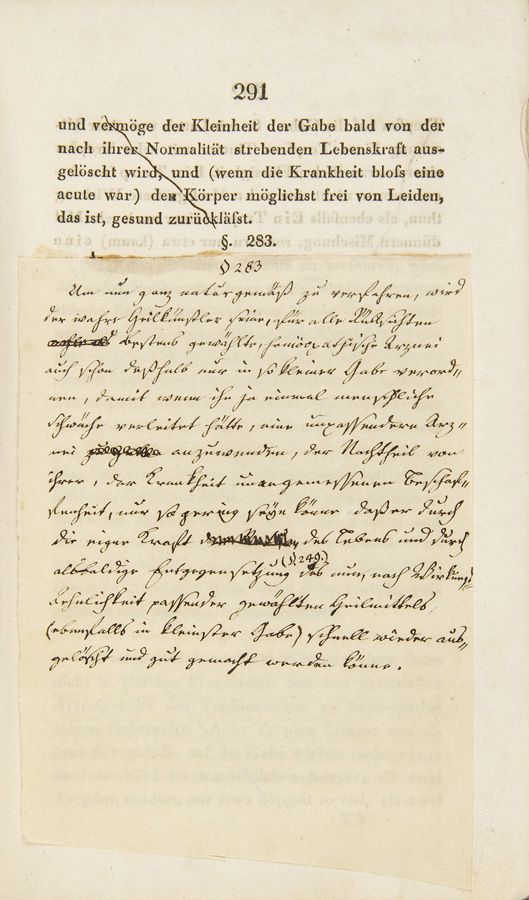 291
und vermöge der Kleinheit der Gabe bald von der
nach ihrer Normalität strebenden Lebenskraft aus-
gelöscht wird, und (wenn die Krankheit bloſs eine
acute war) den Körper möglichst frei von Leiden,
das ist, gesund zurückläſst.
§. 283.
§ 283
Um nun ganz naturgemäß zu verfahren, wird
der wahre Heilkünstler seine, für alle Rücksichten
bestens gewählte, homöopathische Arznei
auch schon deßhalb nur in so kleiner Gabe verord„
nen, damit wenn ihn ja einmal menschliche
Schwäche verleitet hätte, eine unpassendere Arz„
nei anzuwenden, der Nachtheil von
ihrer, der Krankheit unangemessenen Beschaf„
fenheit, nur so gering seyn könne daß er durch
die eigne Kraft des Lebens und durch
(§ 249.)
albbaldige Entgegensetzung des nun, nach Wirkungs„
Aehnlichkeit passender gewählten Heilmittels,
(ebenfalls in kleinster Gabe) schnell wieder aus„
gelöscht und gut gemacht werden könne.